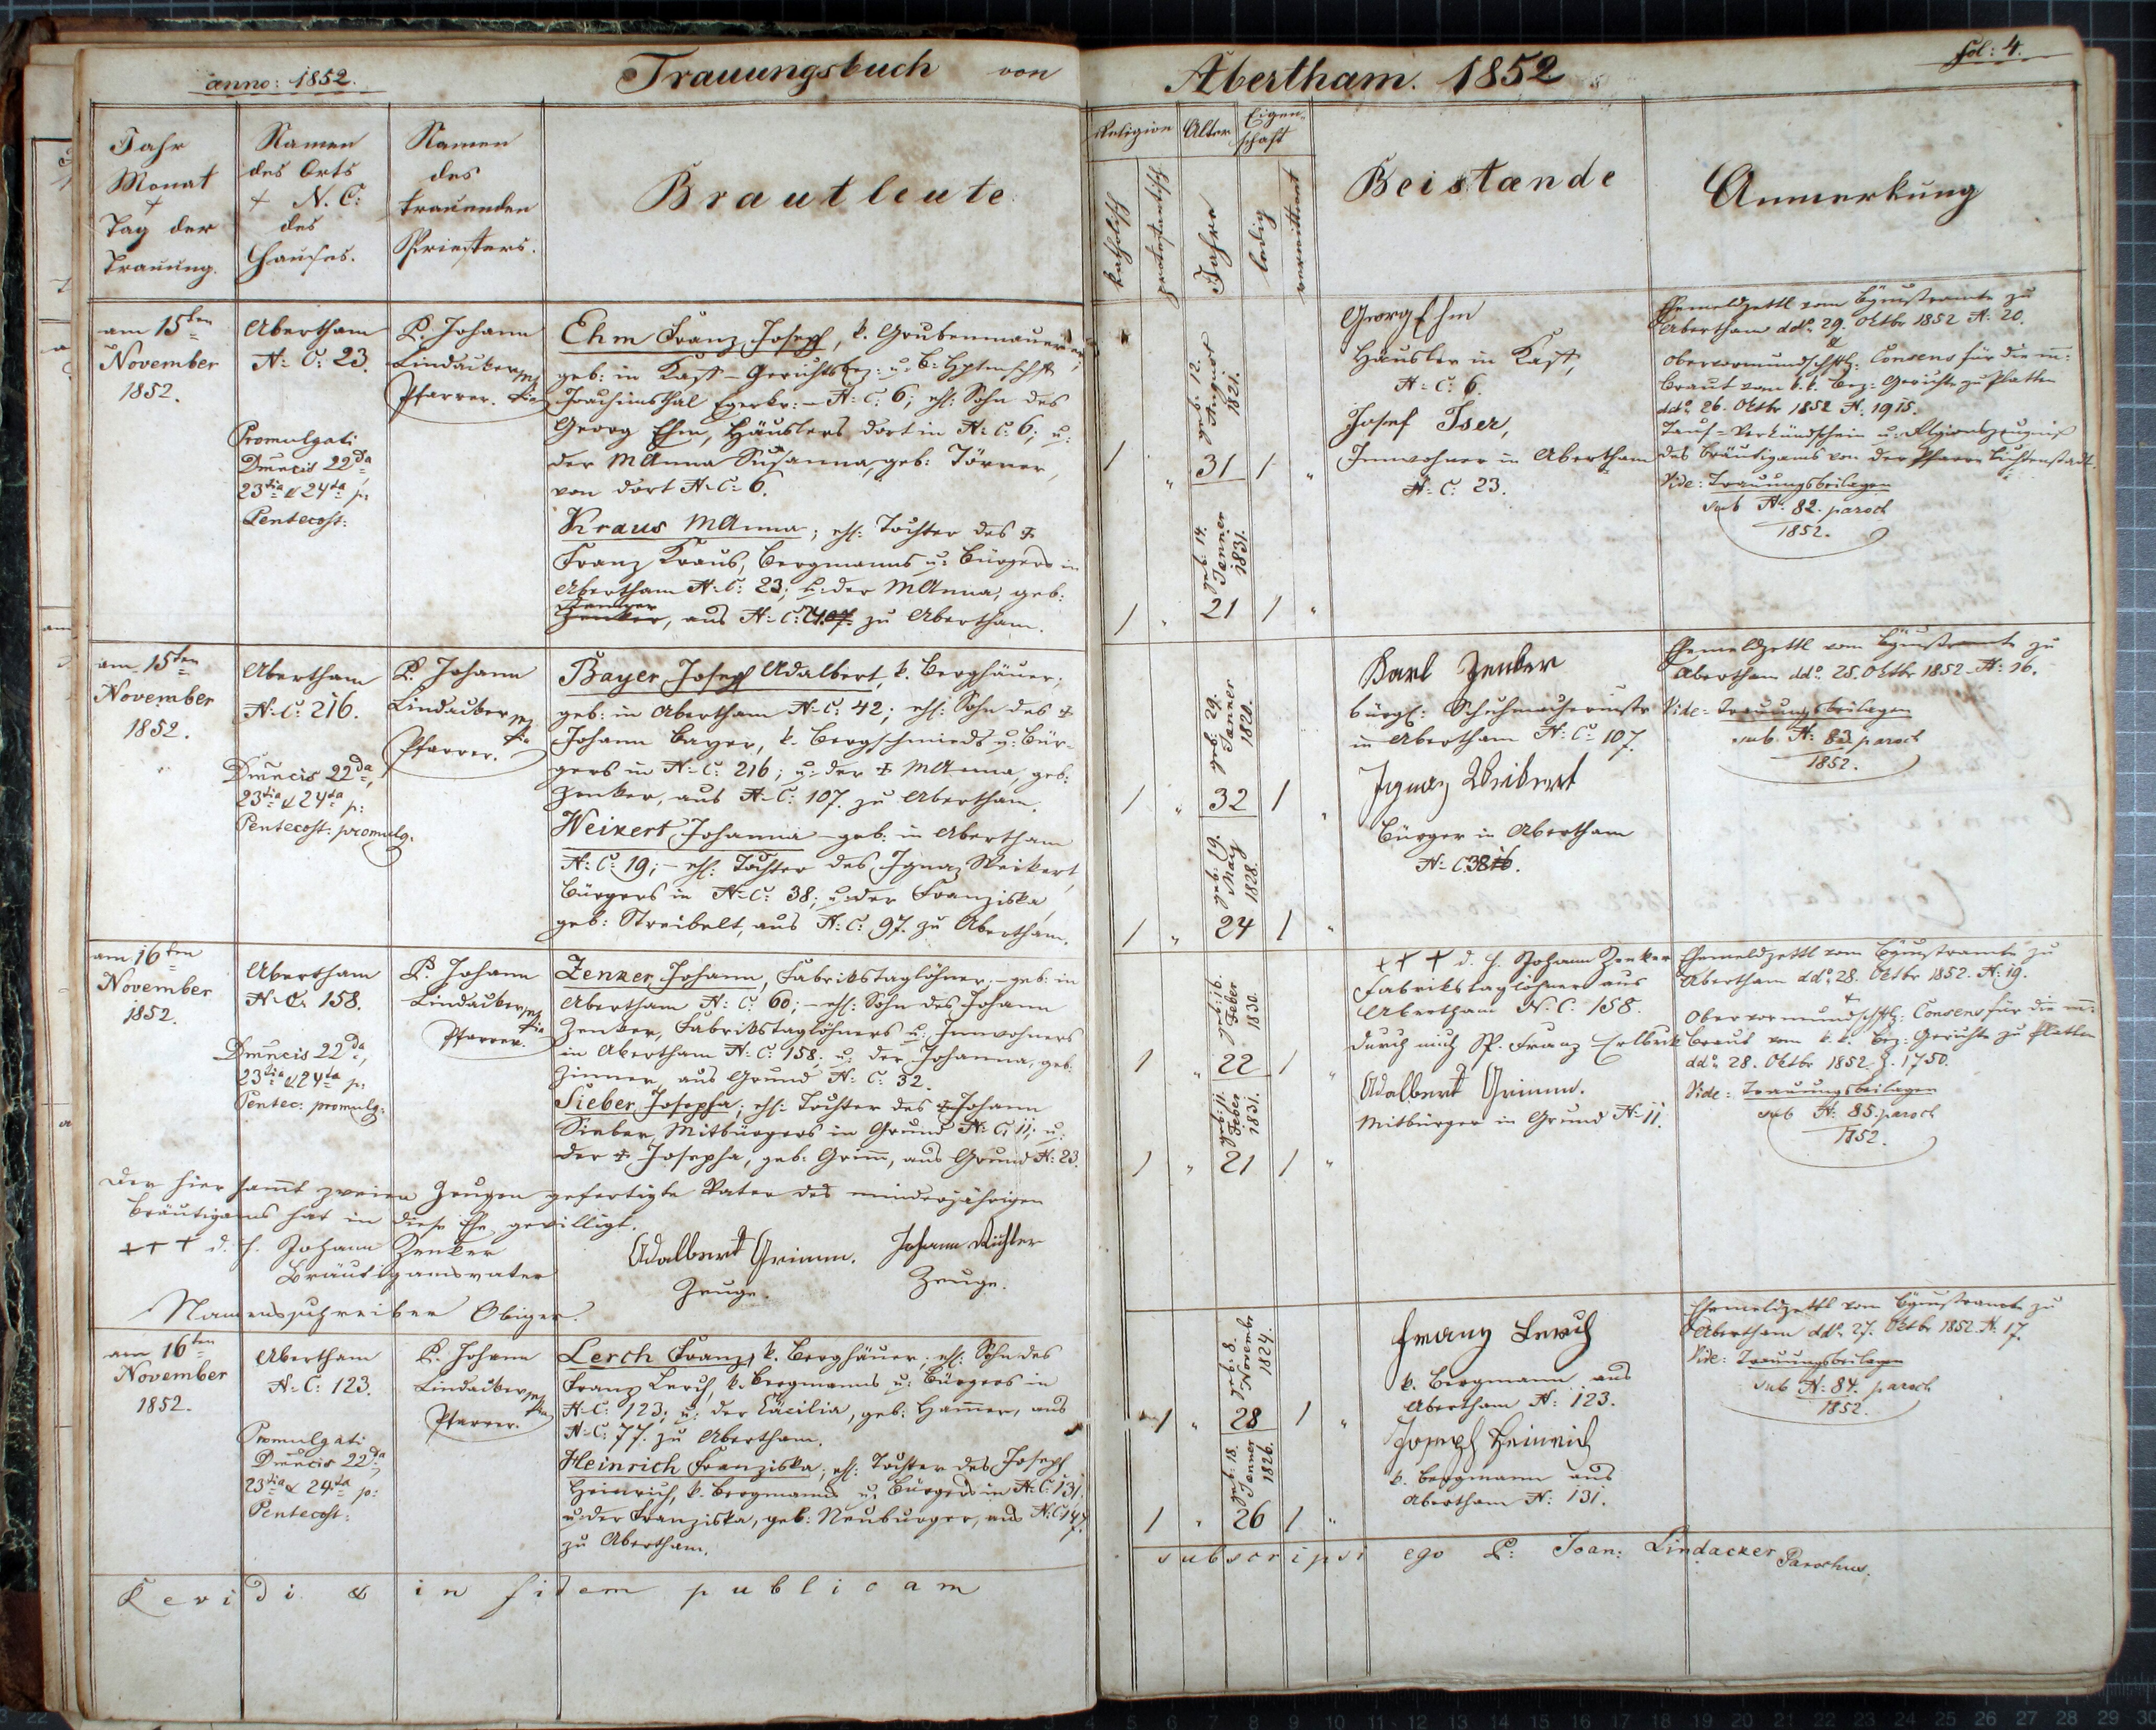 anno: 1852.
Trauungsbuch von
Jahr
Monat
+
Tag der
Trauung.
Namen
des Orts
+ N. C:
des
Hauses.
Namen
des
trauenden
Priesters.
Brautleute
am 15ten
November
1852.
Abertham
N: C: 23.
Promulgati
Dmincis 22da,
23tia & 24ta p:
Pentecost:
P. Johann
Lindacker
Pfarrer.
Ehm Franz Joseph, k. Grubenmaurer,
geb: in Kaff - Gerichtsbez: u: B: Hptmschft
Joachimsthal Egerkr: - N: C: 6; ehl: Sohn des
Georg Ehm, Häuslers dort in N: C: 6; u:
der MAnna Susanna, geb: Törner,
von dort N: C: 6.
Kraus MAnna; ehl: Tochter des ‡
Franz Kraus, Bergmanns u: Bürgers in
Abertham N: C: 23; u: der MAnna, geb:
Zenker, aus N: C: 107. zu Abertham.
am 15ten
November
1852.
Abertham
N: C: 216.
Dmincis 22da,
23tia & 24ta p:
Pentecost: promulg.
P. Johann
Lindacker
Pfarrer.
Bayer Joseph Adalbert, k. Berghäuer;
geb: in Abertham N: C: 42; ehl: Sohn des ‡
Johann Bayer, k. Bergschmieds u: Bür-
gers in N: C: 216; u: der ‡ MAnna, geb:
Zenker, aus N: C: 107. zu Abertham.
Weikert Johanna - geb: in Abertham
N: C: 19; - ehl: Tochter des Ignaz Weikert,
Bürgers in N: C: 38; u: der Franziska,
geb: Streibelt, aus N: C: 97. zu Abertham.
am 16ten
November
1852.
Abertham
N: C. 158.
Dmincis 22da,
23tia & 24ta p:
Pentec: promulg:
P. Johann
Lindacker
Pfarrer.
Zenker Johann, Fabrikstaglöhner, - geb: in
Abertham N: C: 60; - ehl: Sohn des Johann
Zenker, Fabrikstaglöhners u: Innwohners
in Abertham N: C: 158; u: der Johanna, geb:
Zinner, aus Grund N: C: 32.
Sieber Josepha; ehl: Tochter des ‡ Johann
Sieber, Mitbürgers in Grund N: C: 11; u:
der ‡ Josepha, geb: Grim̄, aus Grund N: 23.
Der hier sammt zweien Zeugen gefertigte Vater des minderjährigen
Bräutigams hat in diese Ehe gewilligt.
+++ d. h. Johann Zenker
Bräutigamsvater
Adalbert Grimm.
Zeuge.
Johann Richter
Zeuge.
Namensschreiber Obiger.
am 16ten
November
1852.
Abertham
N: C: 123.
Promulgati
Dmincis 22da,
23tia & 24ta p:
Pentecost:
P. Johann
Lindacker
Pfarrer.
Lerch Franz, k. Berghäuer; ehl: Sohn des
Franz Lerch, k. Bergmanns u: Bürgers in
N: C: 123; u: der Cäcilia, geb: Ham̄er, aus
N: C: 77. zu Abertham.
Heinrich Franziska; ehl: Tochter des Joseph
Heinrich, k. Bergmanns u: Bürgers in N: C: 131
u: der Franziska, geb: Neuburger, aus N: C: 147.
zu Abertham.
Revidi & in fidem publicam
Abertham. 1852
fol: 4.
Religion
Alter
Eigen-
schaft
katholisch
protestantisch
Jahre
ledig
verwittwet
Beistænde
Anmerkung
geb: 12.
August
1821.
1 " 31 1 "
geb: 14.
Jenner
1831.
1 " 21 1 "
Georg Ehm
Häusler in Kaff,
N: C: 6.
Josef Iser,
Innwohner in Abertham
N: C: 23.
Ehemeldzettl vom Bgmstramte zu
Abertham ddo. 29. Oktbr 1852 N: 20.
&
Obervormundschftl: Consens für die m:
Braut vom k. k. Bez: Gerichte zu Platten
ddo. 26. Oktbr 1852 N. 1915.
Tauf-Verkündschein u: Religionszeugniß
des Bräutigams von der Pfarre Lichtenstadt.
Vide: Trauungsbeilagen
sub N: 82. paroch
1852.
geb: 29.
Jänner
1820.
1 " 32 1 "
geb: 19.
May
1828.
1 " 24 1 "
Karl Zenker
bürgl: Schuhmachermstr
in Abertham N: C: 107.
Ignaz Weikert
Bürger in Abertham
N: C: 38.
Ehemeldzettl vom Bgmstramte zu
Abertham ddo. 25. Oktbr 1852 N: 16.
Vide: Trauungsbeilagen
sub. N: 83 paroch
1852.
geb: 16.
Feber
1830.
1 " 22 1 "
geb: 11.
Feber
1831.
1 " 21 1 "
+++ d. h. Johann Zenker
Fabrikstaglöhner aus
Abertham N. C. 158.
durch mich Sp. Franz Erlbeck
Adalbert Grimm.
Mitbürger in Grund N. 11.
Ehemeldzettl vom Bgmstramte zu
Abertham ddo. 28. Oktbr 1852. N: 19.
+
Obervormundschftl: Consens für die m:
Braut vom k. k. Bez: Gerichte zu Platten
ddo. 28. Oktbr 1852. Z. 1750.
Vide: Trauungsbeilagen
sub N: 85. paroch
1852.
geb: 8.
Novembr
1824.
1 " 28 1 "
geb: 18.
Jenner
1826.
1 " 26 1 "
Franz Lerch
k. Bergmann aus
Abertham N: 123.
Joseph Heinrich
k. Bergmann aus
Abertham N: 131.
Ehemeldzettl vom Bgmstramte zu
Abertham ddo. 27. Oktbr 1852. N: 17.
Vide: Trauungsbeilagen
sub N: 84. paroch
1852.
subscripsi ego P: Joan: Lindacker Parochus.